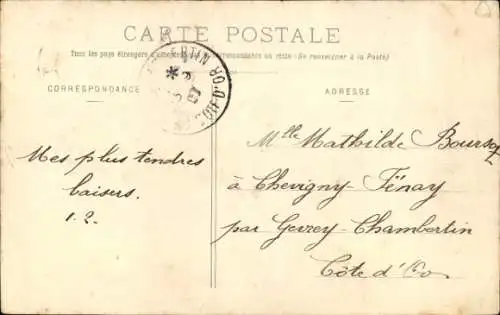 CARTE POSTALE
Tous les pays étrangers n'acceptent pas la correspondance au recto (Se renseigner à la Poste)
CORRESPONDANCE
ADRESSE
CÔTE D'OR
Mes plus tendres
baisers.
Mlle Mathilde
à Chevigny-Fénay
par Gevrey-Chambertin
Côte d'Or